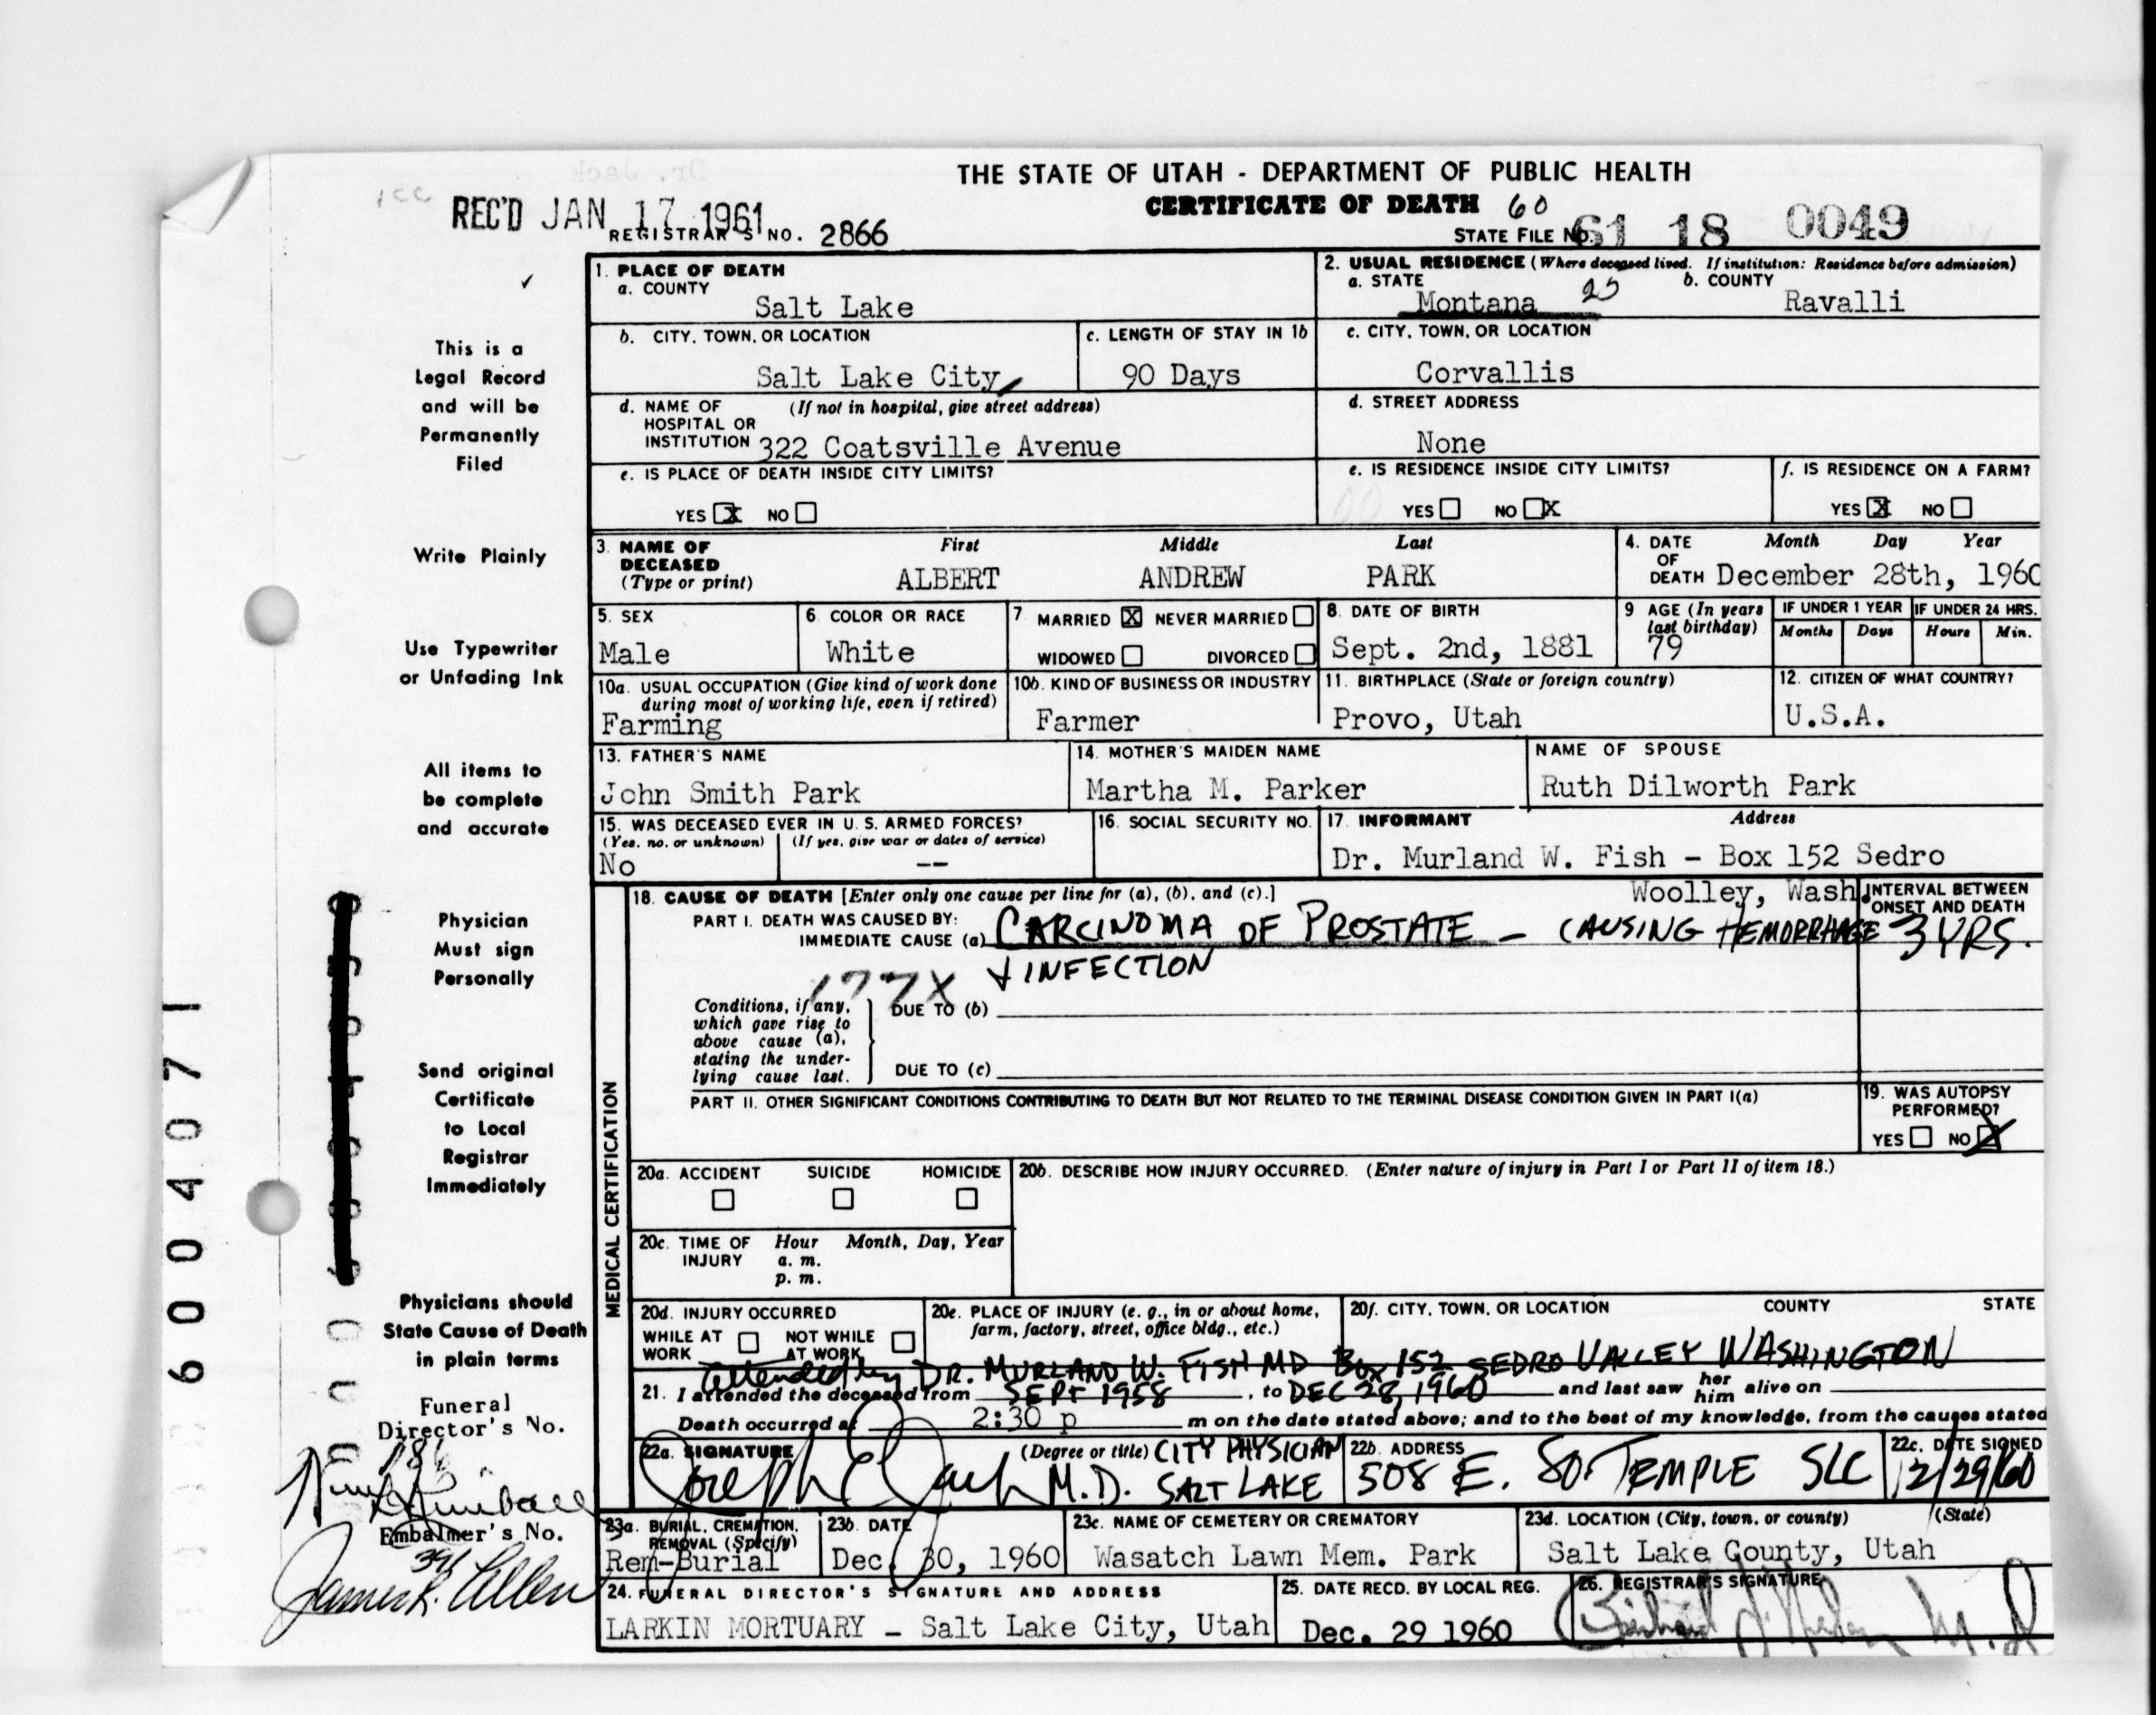 THE STATE OF UTAH - DEPARTMENT OF PUBLIC HEALTH
CERTIFICATE OF DEATH 60
REC'D JAN 17 1961
REGISTRAR'S NO. 2866
STATE FILE NO. 61 18 0049
1. PLACE OF DEATH
a. COUNTY
Salt Lake
2. USUAL RESIDENCE (Where deceased lived. If institution: Residence before admission)
a. STATE b. COUNTY
Montana 25 Ravalli
b. CITY, TOWN, OR LOCATION
Salt Lake City
c. LENGTH OF STAY IN 1b
90 Days
c. CITY, TOWN, OR LOCATION
Corvallis
d. NAME OF (If not in hospital, give street address)
HOSPITAL OR
INSTITUTION 322 Coatsville Avenue
d. STREET ADDRESS
None
e. IS PLACE OF DEATH INSIDE CITY LIMITS?
YES X NO
e. IS RESIDENCE INSIDE CITY LIMITS?
YES NO X
f. IS RESIDENCE ON A FARM?
YES X NO
3. NAME OF DECEASED (Type or print)
First Middle Last
ALBERT ANDREW PARK
4. DATE OF DEATH Month Day Year
December 28th, 1960
5. SEX
Male
6. COLOR OR RACE
White
7. MARRIED X NEVER MARRIED
WIDOWED DIVORCED
8. DATE OF BIRTH
Sept. 2nd, 1881
9 AGE (In years last birthday)
79
IF UNDER 1 YEAR IF UNDER 24 HRS.
Months Days Hours Min.
10a. USUAL OCCUPATION (Give kind of work done
during most of working life, even if retired)
Farming
10b. KIND OF BUSINESS OR INDUSTRY
Farmer
11. BIRTHPLACE (State or foreign country)
Provo, Utah
12. CITIZEN OF WHAT COUNTRY?
U.S.A.
13. FATHER'S NAME
John Smith Park
14. MOTHER'S MAIDEN NAME
Martha M. Parker
NAME OF SPOUSE
Ruth Dilworth Park
15. WAS DECEASED EVER IN U.S. ARMED FORCES?
(Yes, no, or unknown) (If yes, give war or dates of service)
No --
16. SOCIAL SECURITY NO.
17. INFORMANT Address
Dr. Murland W. Fish - Box 152 Sedro
Woolley, Wash.
MEDICAL CERTIFICATION
18. CAUSE OF DEATH [Enter only one cause per line for (a), (b), and (c).]
INTERVAL BETWEEN
ONSET AND DEATH
PART I. DEATH WAS CAUSED BY:
IMMEDIATE CAUSE (a) CARCINOMA OF PROSTATE - CAUSING HEMORRHAGE 3 YRS.
+ INFECTION
177X
Conditions, if any,
which gave rise to
above cause (a),
stating the under-
lying cause last.
DUE TO (b)
DUE TO (c)
PART II. OTHER SIGNIFICANT CONDITIONS CONTRIBUTING TO DEATH BUT NOT RELATED TO THE TERMINAL DISEASE CONDITION GIVEN IN PART I(a)
19. WAS AUTOPSY
PERFORMED?
YES NO X
20a. ACCIDENT SUICIDE HOMICIDE
20b. DESCRIBE HOW INJURY OCCURRED. (Enter nature of injury in Part I or Part II of item 18.)
20c. TIME OF INJURY Hour Month, Day, Year
a. m.
p. m.
20d. INJURY OCCURRED
WHILE AT WORK NOT WHILE AT WORK
20e. PLACE OF INJURY (e. g., in or about home,
farm, factory, street, office bldg., etc.)
20f. CITY, TOWN, OR LOCATION COUNTY STATE
attended by DR. MURLAND W. FISH MD BOX 152 SEDRO VALLEY WASHINGTON
21. I attended the deceased from SEPT 1958, to DEC 28, 1960 and last saw her him alive on
Death occurred at 2:30 p m on the date stated above; and to the best of my knowledge, from the causes stated
22a. SIGNATURE (Degree or title) CITY PHYSICIAN
M.D. SALT LAKE
22b. ADDRESS
508 E. SO. TEMPLE SLC
22c. DATE SIGNED
12/29/60
23a. BURIAL, CREMATION,
REMOVAL (Specify)
Rem-Burial
23b. DATE
Dec. 30, 1960
23c. NAME OF CEMETERY OR CREMATORY
Wasatch Lawn Mem. Park
23d. LOCATION (City, town, or county) (State)
Salt Lake County, Utah
24. FUNERAL DIRECTOR'S SIGNATURE AND ADDRESS
LARKIN MORTUARY - Salt Lake City, Utah
25. DATE RECD. BY LOCAL REG.
Dec. 29 1960
26. REGISTRAR'S SIGNATURE
This is a
Legal Record
and will be
Permanently
Filed
Write Plainly
Use Typewriter
or Unfading Ink
All items to
be complete
and accurate
Physician
Must sign
Personally
Send original
Certificate
to Local
Registrar
Immediately
Physicians should
State Cause of Death
in plain terms
Funeral
Director's No.
186
Kimball
Embalmer's No.
391
James R. Allen
6004071